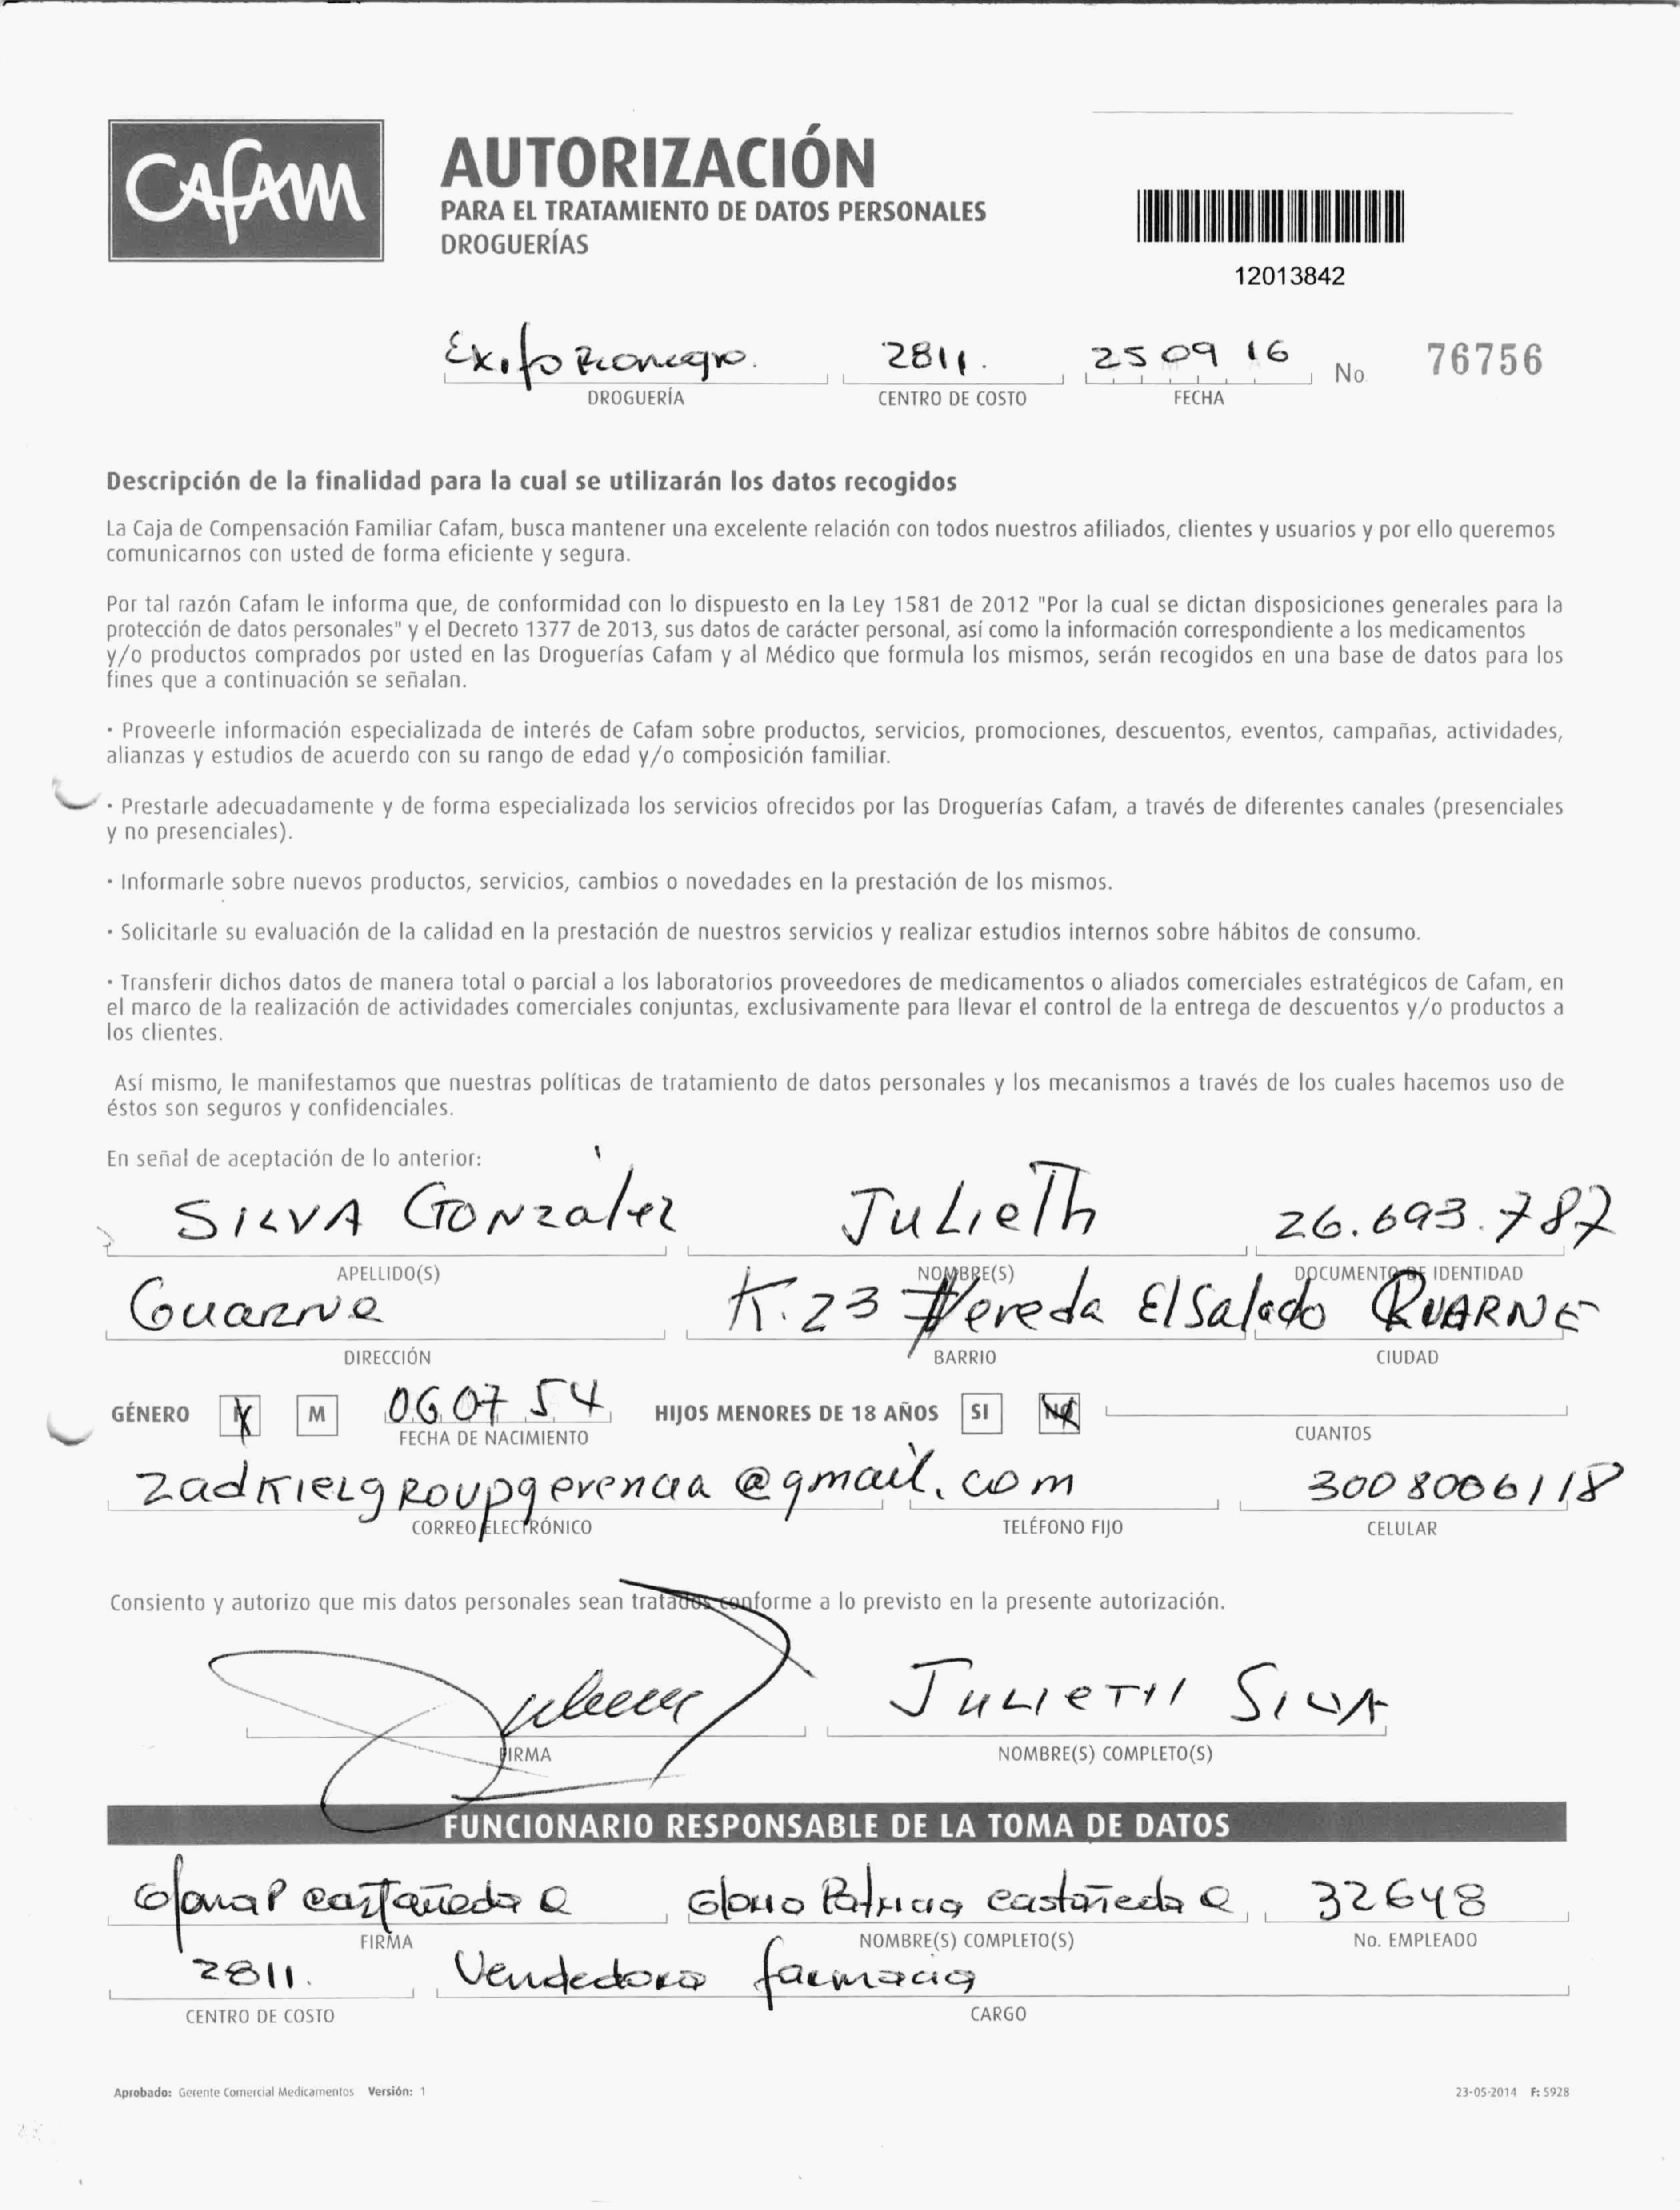 CAFAM
AUTORIZACIÓN
PARA EL TRATAMIENTO DE DATOS PERSONALES
DROGUERÍAS
12013842
Exito Rionegro. 2811. 25 09 16 No. 76756
DROGUERÍA CENTRO DE COSTO FECHA
Descripción de la finalidad para la cual se utilizarán los datos recogidos
La Caja de Compensación Familiar Cafam, busca mantener una excelente relación con todos nuestros afiliados, clientes y usuarios y por ello queremos
comunicarnos con usted de forma eficiente y segura.
Por tal razón Cafam le informa que, de conformidad con lo dispuesto en la Ley 1581 de 2012 "Por la cual se dictan disposiciones generales para la
protección de datos personales" y el Decreto 1377 de 2013, sus datos de carácter personal, así como la información correspondiente a los medicamentos
y/o productos comprados por usted en las Droguerías Cafam y al Médico que formula los mismos, serán recogidos en una base de datos para los
fines que a continuación se señalan.
· Proveerle información especializada de interés de Cafam sobre productos, servicios, promociones, descuentos, eventos, campañas, actividades,
alianzas y estudios de acuerdo con su rango de edad y/o composición familiar.
· Prestarle adecuadamente y de forma especializada los servicios ofrecidos por las Droguerías Cafam, a través de diferentes canales (presenciales
y no presenciales).
· Informarle sobre nuevos productos, servicios, cambios o novedades en la prestación de los mismos.
· Solicitarle su evaluación de la calidad en la prestación de nuestros servicios y realizar estudios internos sobre hábitos de consumo.
· Transferir dichos datos de manera total o parcial a los laboratorios proveedores de medicamentos o aliados comerciales estratégicos de Cafam, en
el marco de la realización de actividades comerciales conjuntas, exclusivamente para llevar el control de la entrega de descuentos y/o productos a
los clientes.
Así mismo, le manifestamos que nuestras políticas de tratamiento de datos personales y los mecanismos a través de los cuales hacemos uso de
éstos son seguros y confidenciales.
En señal de aceptación de lo anterior:
SILVA González Julieth 26.693.787
APELLIDO(S) NOMBRE(S) DOCUMENTO DE IDENTIDAD
Guarne K.23 Vereda El Salado GUARNE
DIRECCIÓN BARRIO CIUDAD
GÉNERO M 06 07 54 HIJOS MENORES DE 18 AÑOS SI NO
FECHA DE NACIMIENTO CUANTOS
zadkielgroupgerencia@gmail.com 3008006118
CORREO ELECTRÓNICO TELÉFONO FIJO CELULAR
Consiento y autorizo que mis datos personales sean tratados conforme a lo previsto en la presente autorización.
JULIETH SILVA
FIRMA NOMBRE(S) COMPLETO(S)
FUNCIONARIO RESPONSABLE DE LA TOMA DE DATOS
Gloria P Castañeda Q Gloria Patricia Castañeda Q 32648
FIRMA NOMBRE(S) COMPLETO(S) No. EMPLEADO
2811. Vendedora farmacia
CENTRO DE COSTO CARGO
Aprobado: Gerente Comercial Medicamentos Versión: 1 23-05-2014 F: 5928